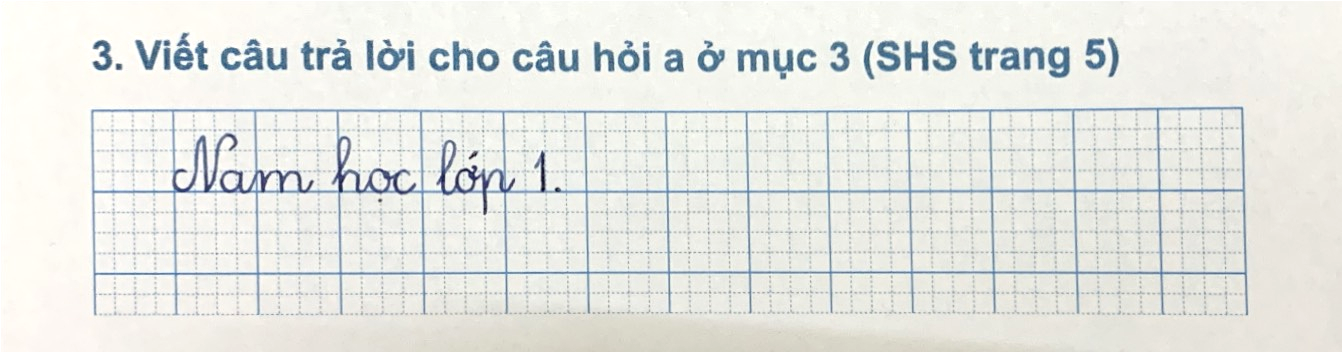 3. Viết câu trả lời cho câu hỏi a ở mục 3 (SHS trang 5)
Nam học lớp 1.